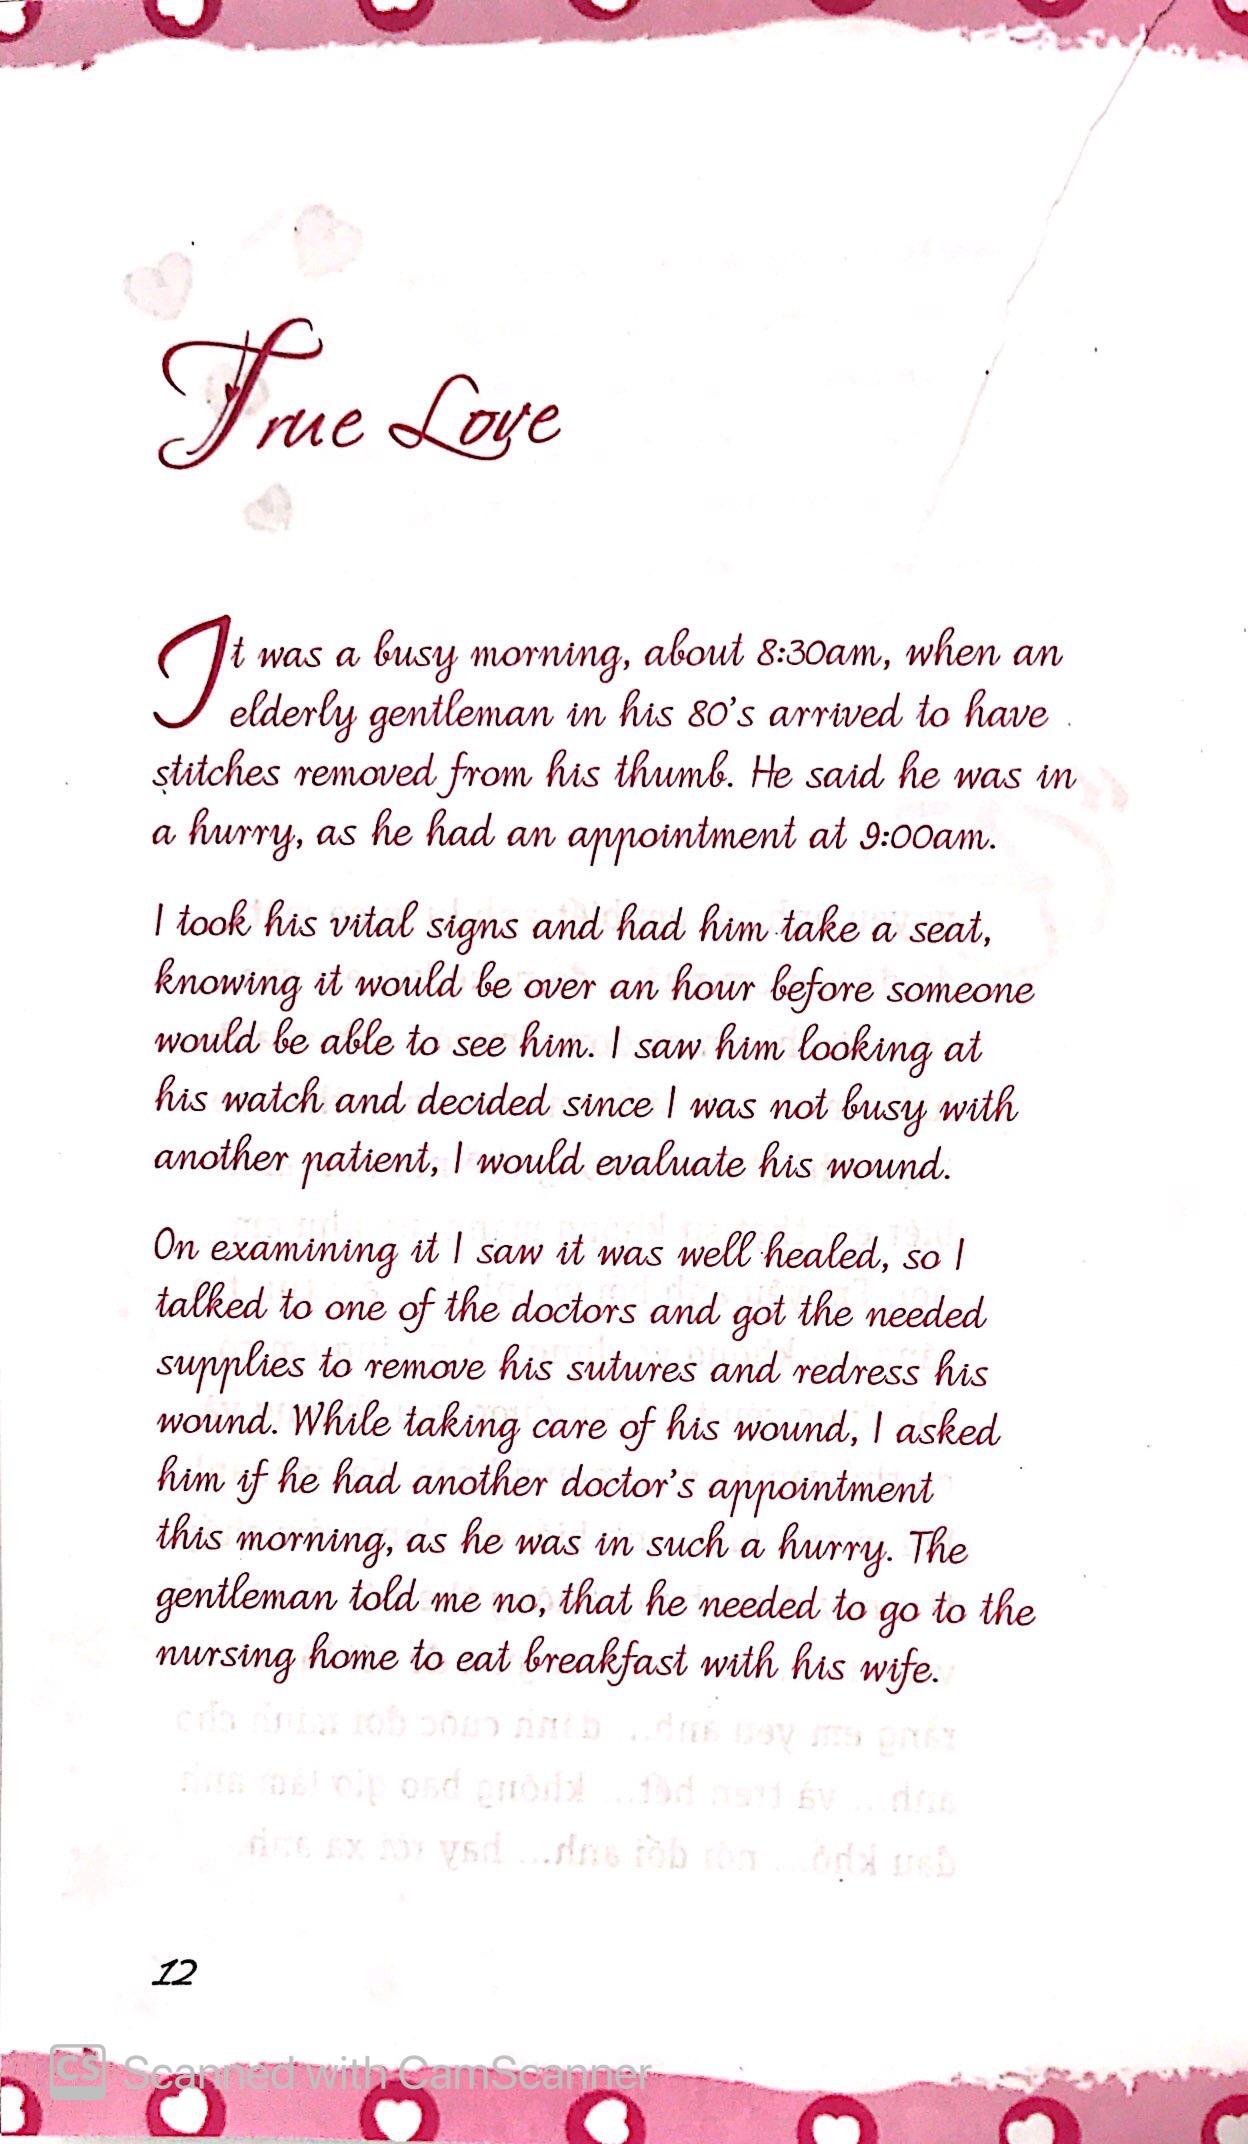 True Love
It was a busy morning, about 8:30am, when an
elderly gentleman in his 80's arrived to have
stitches removed from his thumb. He said he was in
a hurry, as he had an appointment at 9:00am.
I took his vital signs and had him take a seat,
knowing it would be over an hour before someone
would be able to see him. I saw him looking at
his watch and decided since I was not busy with
another patient, I would evaluate his wound.
On examining it I saw it was well healed, so I
talked to one of the doctors and got the needed
supplies to remove his sutures and redress his
wound. While taking care of his wound, I asked
him if he had another doctor's appointment
this morning, as he was in such a hurry. The
gentleman told me no, that he needed to go to the
nursing home to eat breakfast with his wife.
12
CS Scanned with CamScanner